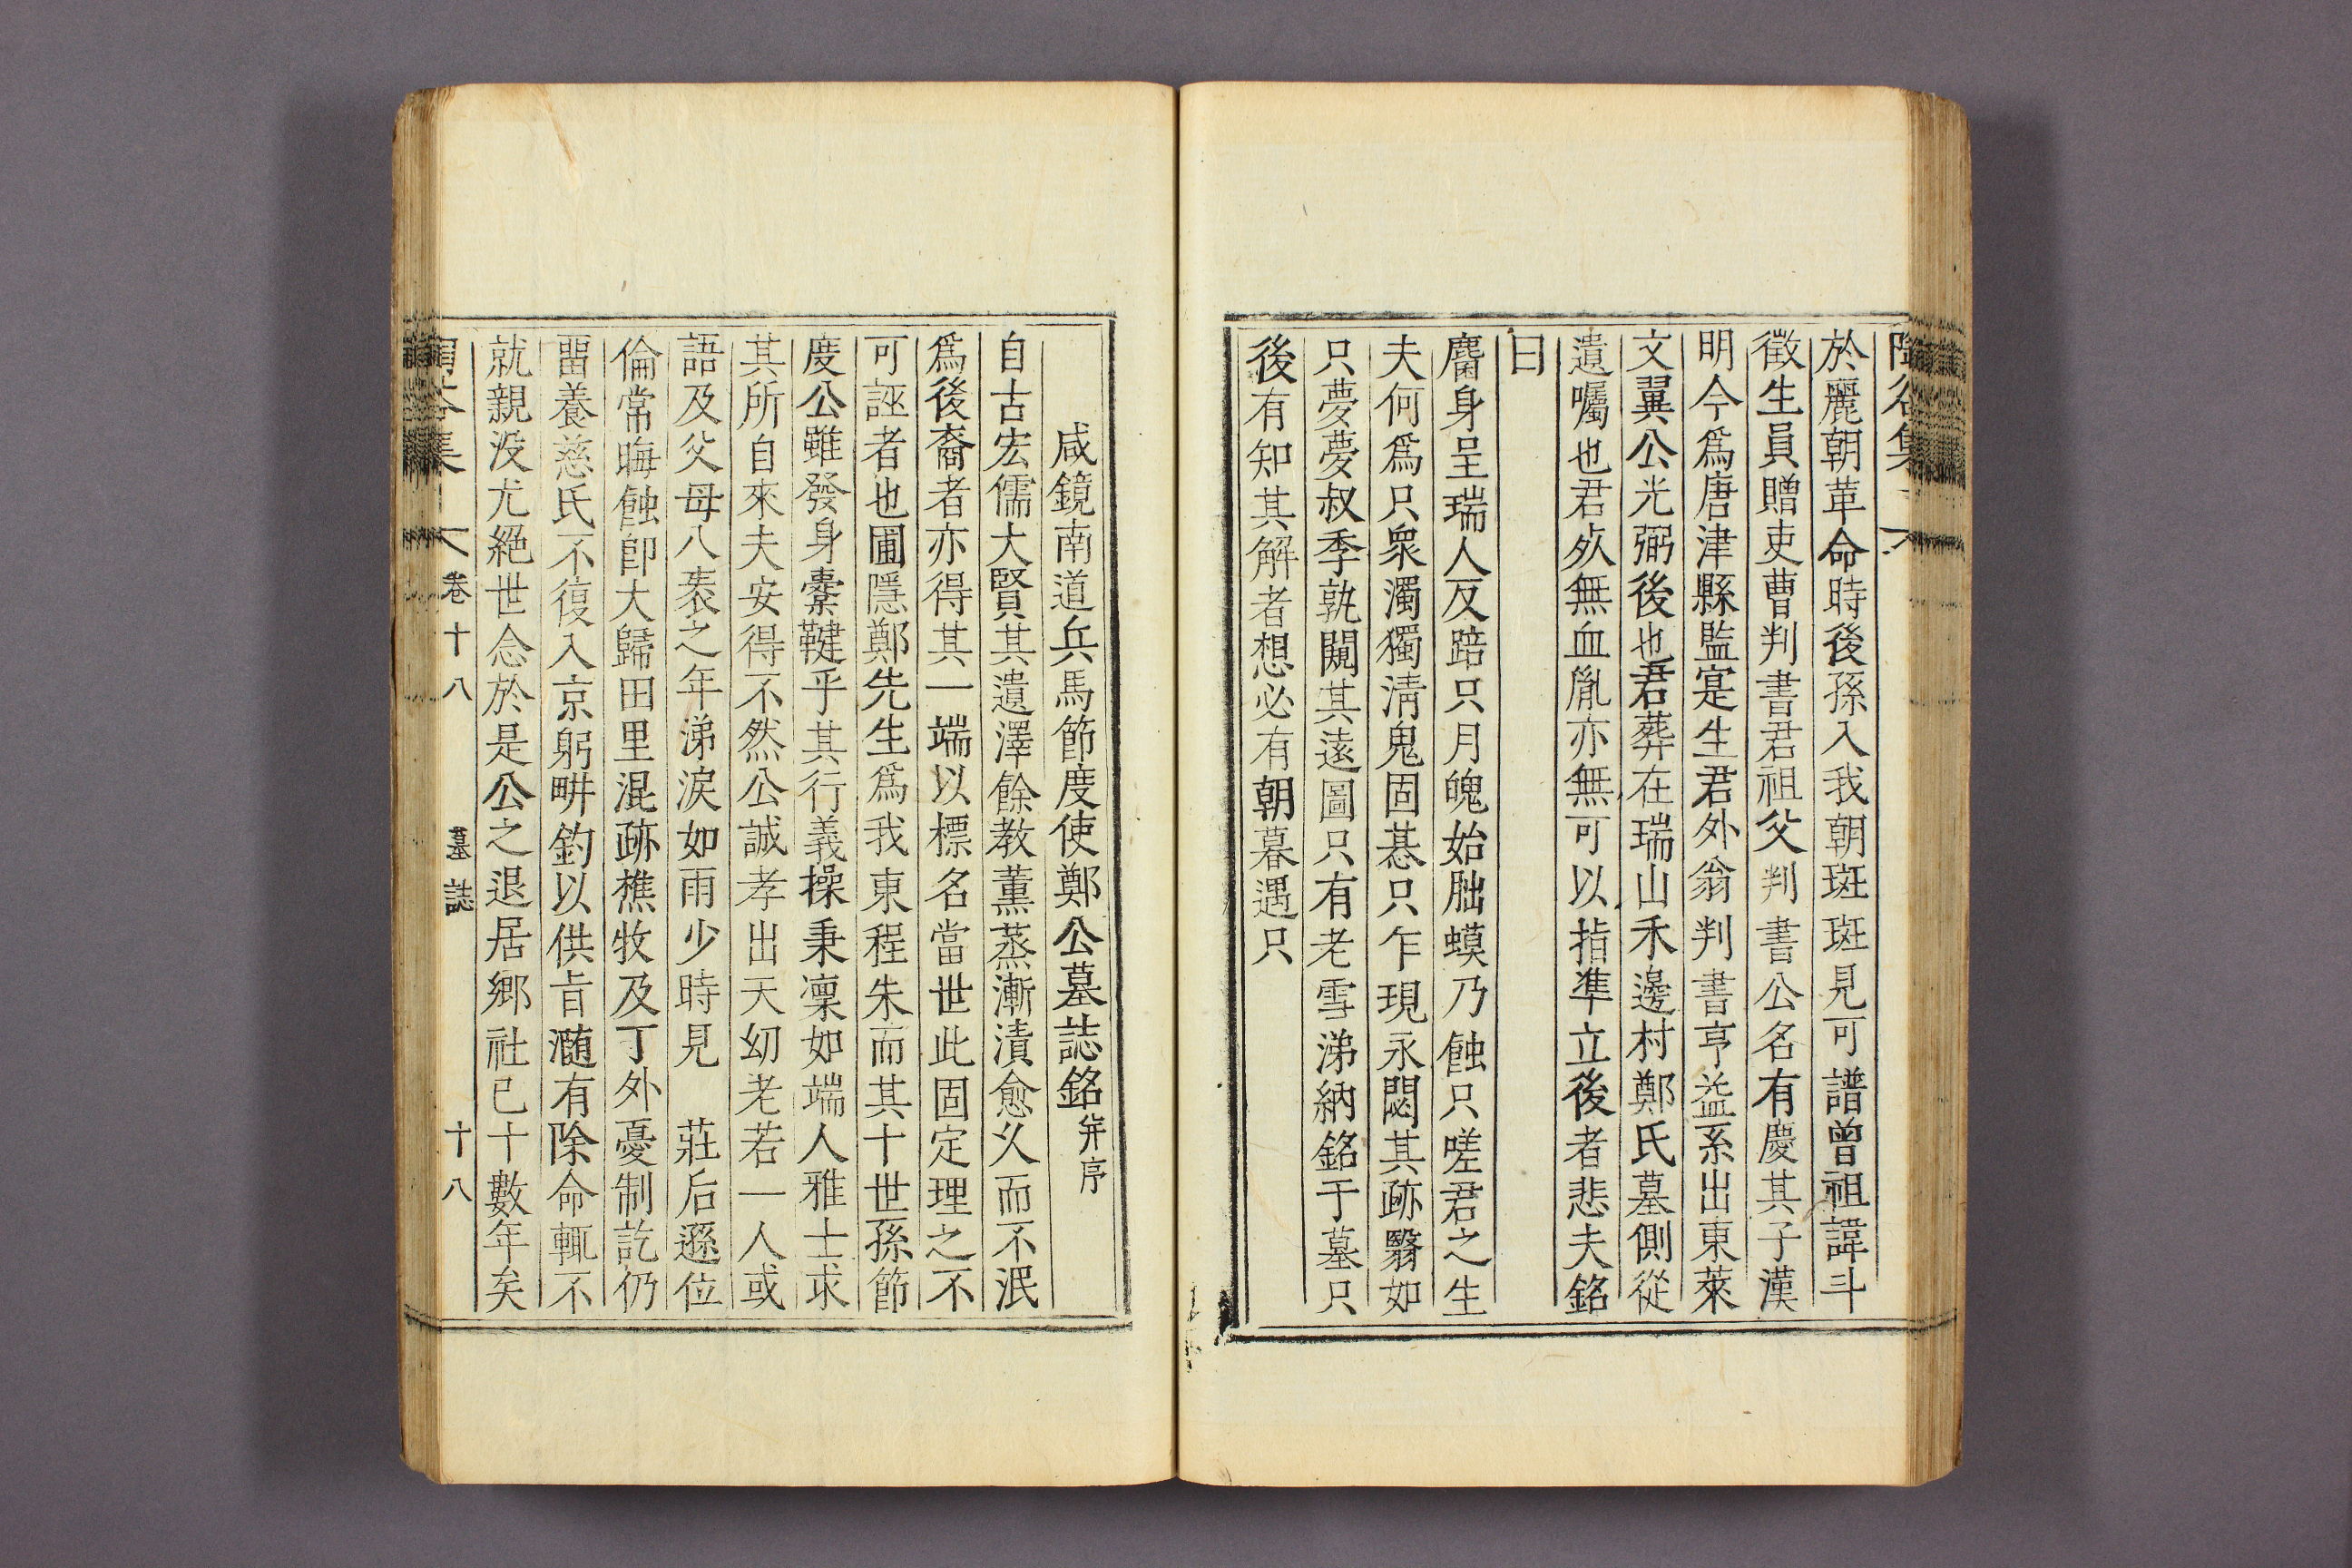 於麗朝革命時後孫入我朝斑斑見可譜曾祖諱斗
徵生員贈吏曹判書君祖父判書公名有慶其子漢
明今爲唐津縣監寔生君外翁判書亨益系出東萊
文翼公光弼後也君葬在瑞山禾邊村鄭氏墓側從
遺囑也君死無血胤亦無可以指準立後者悲夫銘
曰
麕身呈瑞人反踣只月魄始朏蟆乃蝕只嗟君之生
夫何爲只衆濁獨淸鬼固惎只乍現永閟其跡翳如
只夢夢叔季孰闚其遠圖只有老雪涕納銘于墓只
後有知其解者想必有朝暮遇只
咸鏡南道兵馬節度使鄭公墓誌銘 幷序
自古宏儒大賢其遺澤餘敎薰蒸漸漬愈久而不泯
爲後裔者亦得其一端以標名當世此固定理之不
可誣者也圃隱鄭先生爲我東程朱而其十世孫節
度公雖發身櫜鞬乎其行義操秉凜如端人雅士求
其所自來夫安得不然公誠孝出天幼老若一人或
語及父母八袠之年涕淚如雨少時見 莊后遜位
倫常晦蝕卽大歸田里混跡樵牧及丁外憂制訖仍
留養慈氏不復入京躬畊釣以供旨瀡有除命輒不
就親沒尤絕世念於是公之退居鄕社已十數年矣
卷十八 墓誌 十八